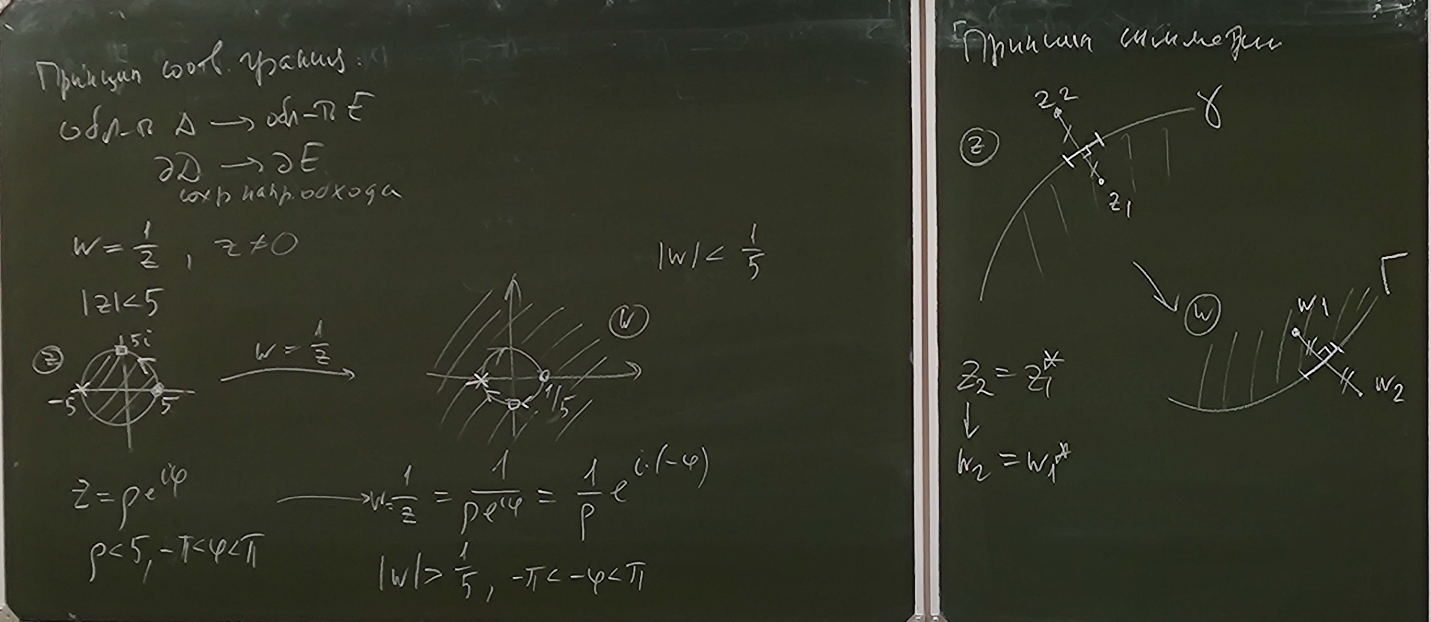 Принцип соотв. границ:
обл-ть D → обл-ть E
∂D → ∂E
сохр напр обхода
w = 1/z , z ≠ 0
|w| < 1/5
|z| < 5
z
5i
-5
5
w = 1/z
w
1/5
z = ρe^{iφ} → w = 1/z = 1/(ρe^{iφ}) = 1/ρ e^{i·(-φ)}
ρ < 5, -π < φ < π
|w| > 1/5, -π < -φ < π
Принцип симметрии
z
z2
γ
z1
w
Γ
w1
w2
z2 = z1*
↓
w2 = w1*